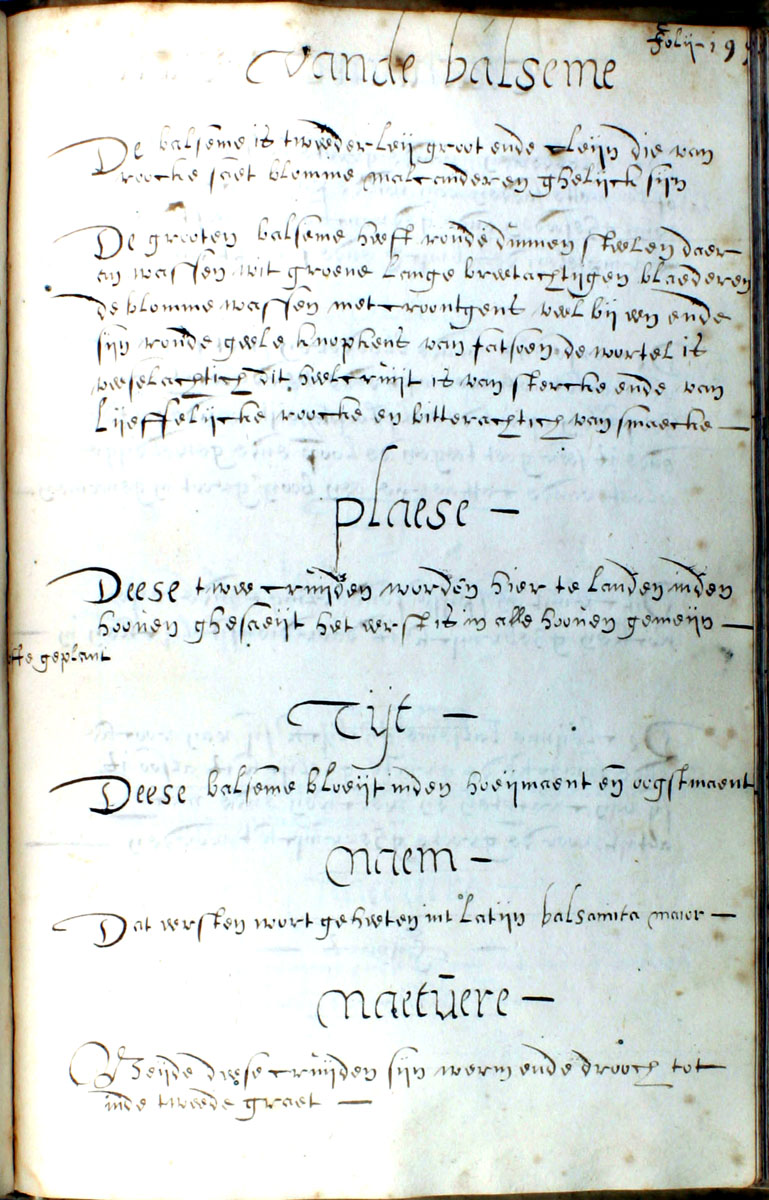 Folij 19
Vande balseme
De balseme is tweederleij groot ende cleijn die van
roocke saet blomme malcanderen ghelijck sijn
De grooten balseme heeft ronde dunnen steelen daer
an wassen wit groene lange breetachtijgen blaederen
de blomme wassen met croontgens veel bij een ende
sijn ronde geele knopkens van fatsoen de wortel is
veeselachtich dit heel cruijt is van stercke ende van
lijeffelijcke roocke en bitterachtich van smaecke —
plaese —
Deese twee cruijden worden hier te landen inden
hooven ghesaeijt het eerste is in alle hooven gemeijn —
ofte geplant
Tijt —
Deese balseme bloeijt inden hoeijmaent en oogstmaent
Naem —
Dat eersten wort geheeten int latijn balsamita maior —
Naetuere —
Beijde deese cruijden sijn werm ende drooch tot
inde tweede graet —